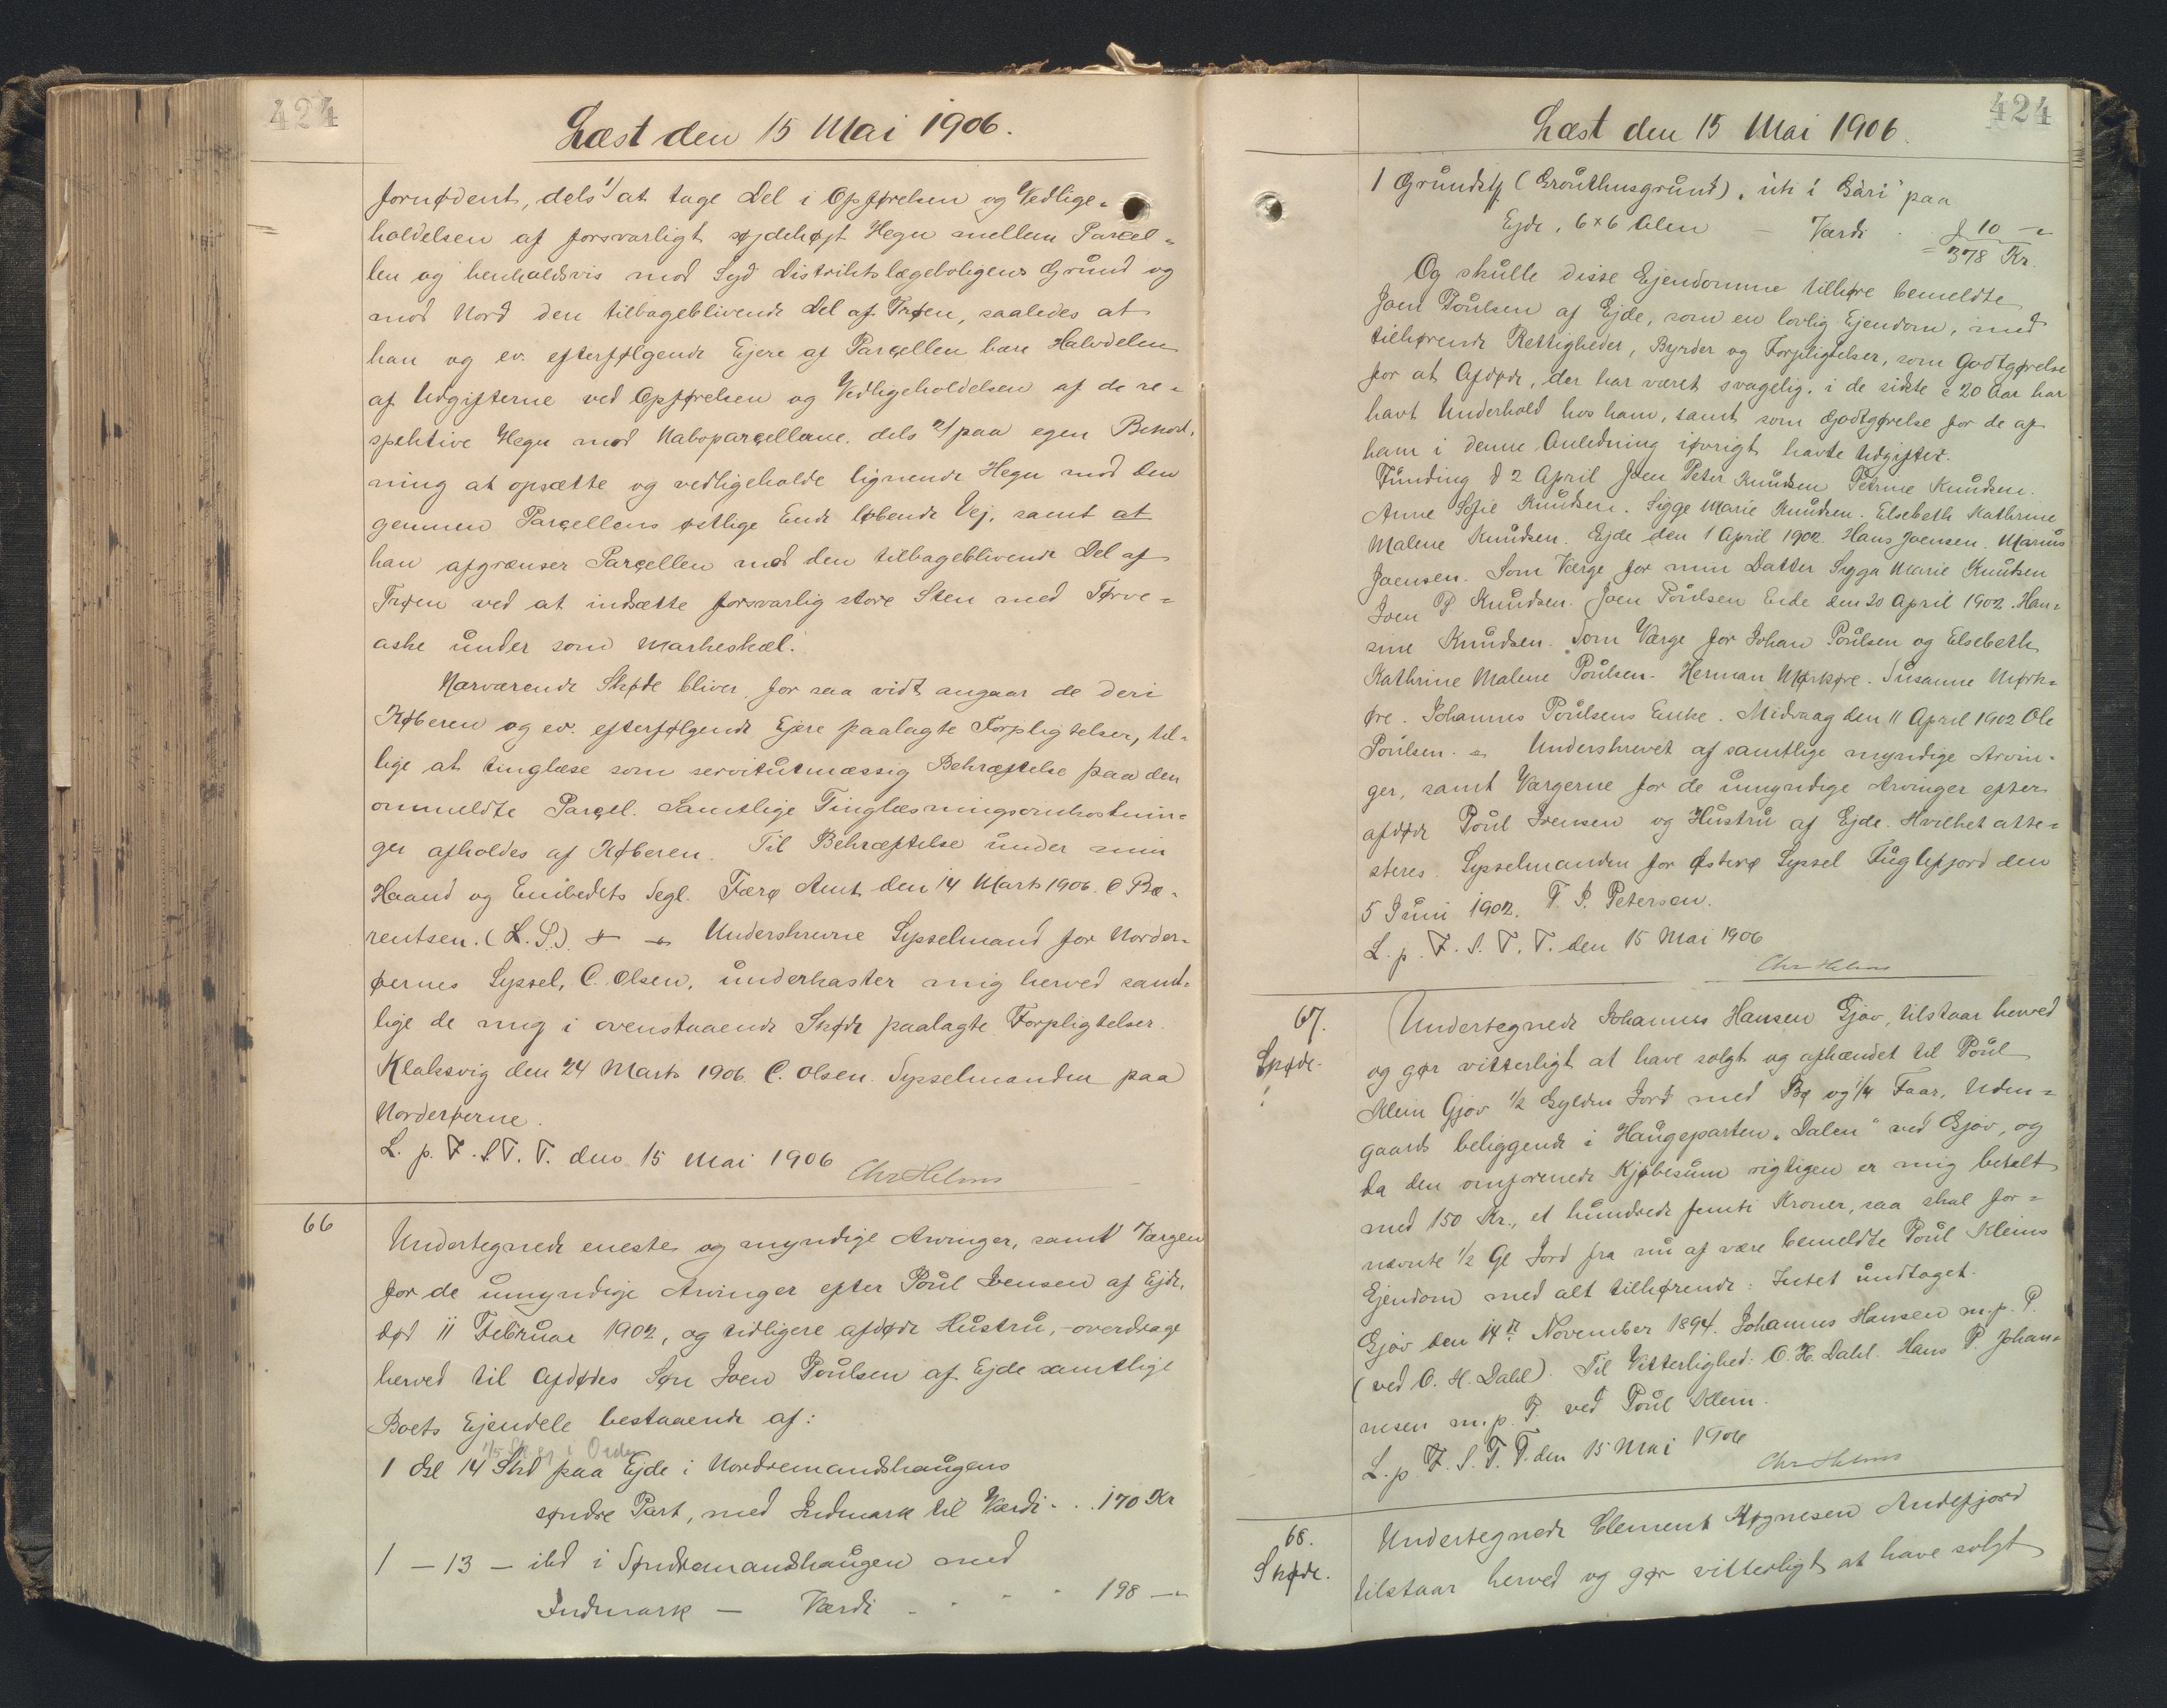 424
Læst den 15 Mai 1906.
fornødent, dels 1/ at tage Del i Opførelsen og Vedlige=
holdelsen af forsvarligt sojdehøjt Hegn mellem Parcel=
len og henholdsvis mod Syd Distriktslægeboligens Grund og
mod Nord den tilbageblivende Del af Trøen, saaledes at
han og ev. efterfølgende Ejere af Parçellen bære Halvdelen
af Udgifterne ved Opførelsen og Vedligeholdelsen af de re=
spektive Hegn mod Naboparçellerne, dels 2/ paa egen Bekost=
ning at opsætte og vedligeholde lignende Hegn mod den
gennem Parçellens østlige Ende løbende Vej, samt at
han afgrænser Parçellen mod den tilbageblivende Del af
Trøen ved at indsætte forsvarlig store Sten med Tørve=
aske under som Markeskæl.
Nærværende Skøde bliver, for saa vidt angaar de deri
Køberen og ev. efterfølgende Ejere paalagte Forpligtelser, til=
lige at tinglæse som servitutmæssig Bekræftelse paa den
ommeldte Parçel. Samtlige Tinglæsningsomkostnin=
ger afholdes af Køberen. Til Bekræftelse under min
Haand og Embedets Segl. Færø Amt den 14 Marts 1906. C Bæ=
rentsen. (L.S.) Underskrevne Sysselmand for Norder=
øernes Syssel, C. Olsen, underkaster mig herved samt=
lige de mig i ovenstaaende Skøde paalagte Forpligtelser.
Klaksvig den 24 Marts 1906. C. Olsen. Sysselmanden paa
Norderøerne.
L. p. F. S. T. T. den 15 Mai 1906 Chr Helms
66
Undertegnede eneste og myndige Arvinger, samt Værgen
for de umyndige Arvinger efter Poul Joensen af Ejde,
død 11 Februar 1902, og tidligere afdøde Hustru, overdrage
herved til Afdødes Søn Joen Poulsen af Ejde samtlige
Boets Ejendele bestaaende af:
1 Gl 14 Skd paa Ejde i Nordremandshaugens
søndre Part, med Indmark til Værdi . . 170 Kr
1 — 13 — ibd i Søndremandshaugen med
Indmark — Værdi . . . . 198 —
424
Læst den 15 Mai 1906.
1 Grundst (Grouthusgrund), úti í Gäri" paa
Ejde, 6 x 6 Alen — Værdi . 10 —
= 378 Kr.
Og skulle disse Ejendomme tilhøre bemeldte
Joen Poulsen af Ejde, som en lovlig Ejendom, med
tilhørende Rettigheder, Byrder og Forpligtelser, som Godtgørelse
for at Afdøde, der har været svagelig, i de sidste c 20 Aar har
havt Underhold hos ham, samt som Godtgørelse for de af
ham i denne Anledning iøvrigt havte Udgifter.
Funding d 2 April Joen Peter Knudsen Petrine Knudsen.
Anne Sofie Knudsen. Sigge Marie Knudsen. Elsebeth Kathrine
Malene Knudsen. Ejde den 1 April 1902. Hans Joensen. Marius
Joensen. Som Værge for min Datter Sigga Marie Knudsen
Joen P Knudsen. Joen Poulsen Eide den 20 April 1902. Han=
sine Knudsen. Som Værge for Johan Poulsen og Elsebeth
Kathrine Malene Poulsen. Herman Mørkøre. Susanne Mørk=
øre. Johannes Poulsens Enke. Midvaag den 11 April 1902 Ole
Poulsen. Underskrevet af samtlige myndige Arvin=
ger, samt Værgerne for de umyndige Arvinger efter
afdøde Poul Joensen og Hustru af Ejde. Hvilket atte=
steres. Sysselmanden for Østerø Syssel Fuglefjord den
5 Juni 1902. T. J. Petersen.
L. p. F. S. T. T. den 15 Mai 1906
Chr Helms
67.
Skøde.
Undertegnede Johannes Hansen Gjov, tilstaar herved
og gør vitterligt at have solgt og afhændet til Poul
Klein Gjov 1/2 Gylden Jord med Bø og 1/4 Faar, Uden=
gaards beliggende i Haugeparten „Dalen" ved Gjov, og
da den omforenede Kjøbesum rigtigen er mig betalt
med 150 Kr., et hundrede femti Kroner, saa skal for=
nævnte 1/2 Gl Jord fra nu af være bemeldte Poul Kleins
Ejendom med alt tilhørende. Intet undtaget.
Gjov den 14de November 1894. Johannes Hansen m. p. P.
(ved O. H. Dahl). Til Vitterlighed: O. H. Dahl. Hans P. Johan=
nesen m. p. P. ved Poul Klein.
L. p. F. S. T. T. den 15 Mai 1906
Chr Helms
68.
Skøde.
Undertegnede Clement Høgnesen Andefjord
tilstaar herved og gør vitterligt at have solgt